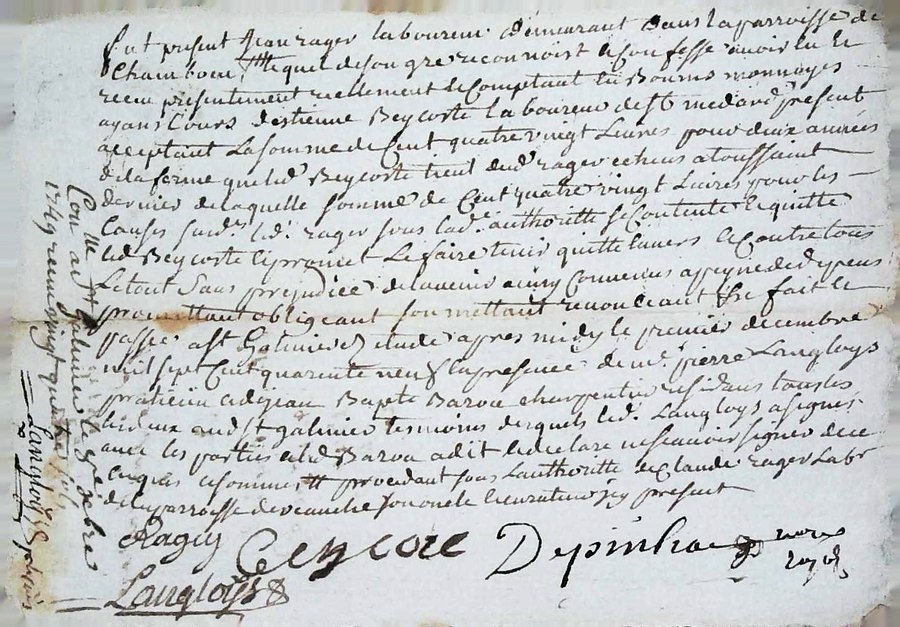 fut present Jean rager laboureur demeurant dans la parroisse de
Chambœu lequel de son gre reconnoist et Confesse avoir eu et
receu presentement reellement et Comptant en Bounes monnoyes
ayant Cours d'estienne Beycoste laboureur de st medard present
acceptant La somme de Cent quatre vingt Livres pour deux années
de la ferme que led Beycoste tient dud rager echeus a toussaint
dernier de laquelle somme de Cent quatre vingt Livres pour les
Causes susd. led. rager sous lad. authoritte se Contente et quitte
led Beycoste et promet Le faire tenir quitte Envers et Contre tous
Le tout sans prejudice de lavenir ainsy Convenus a peyne de depens
promettant obligeant soumettant renonceant &c fait et
passé a st Galmier Etude apres midy le premier decembre
mil sept Cent quarente neuf En presence de me. pierre Langloys
praticien et de jean Bapte Barou charpentier residans tous les
deux aud st galmier tesmoins desquels led. Langloys a signé
avec les parties et led Barou a dit et declare ne scavoir signer de ce
enquis et somme procedant sous l'authoritte de Claude rager Labr
de la parroisse de veauche son oncle et curateur icy present
Ragey Beycote Depinhac nore
royal
Langloys
Con.lle a st galmier le 8e xbre
1749 receu vingt quatre sols
Langloys